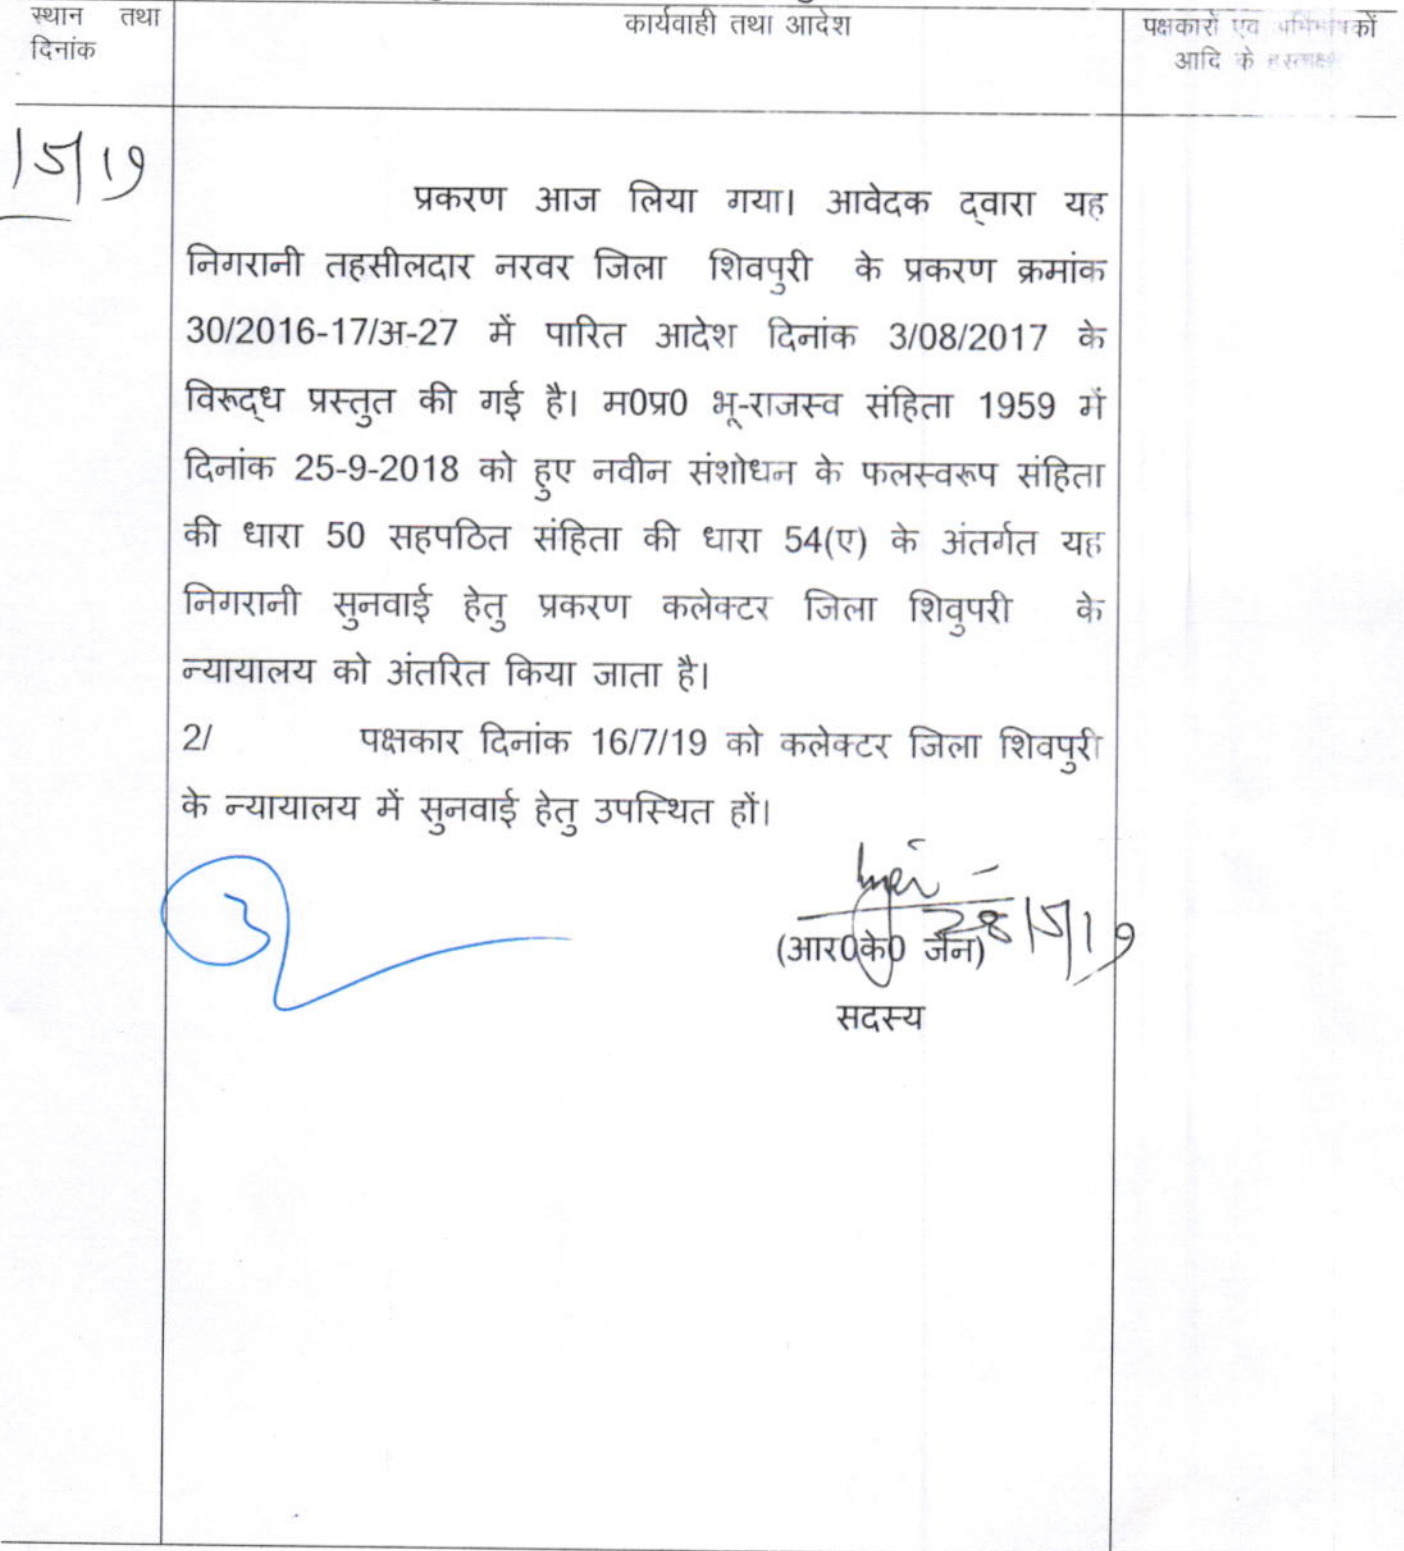 स्थान तथा
दिनांक
कार्यवाही तथा आदेश
पक्षकारों एवं अभिभाषकों
आदि के हस्ताक्षर
/5/19
प्रकरण आज लिया गया। आवेदक द्वारा यह
निगरानी तहसीलदार नरवर जिला शिवपुरी के प्रकरण क्रमांक
30/2016-17/अ-27 में पारित आदेश दिनांक 3/08/2017 के
विरूद्ध प्रस्तुत की गई है। म0प्र0 भू-राजस्व संहिता 1959 में
दिनांक 25-9-2018 को हुए नवीन संशोधन के फलस्वरूप संहिता
की धारा 50 सहपठित संहिता की धारा 54(ए) के अंतर्गत यह
निगरानी सुनवाई हेतु प्रकरण कलेक्टर जिला शिवुपरी के
न्यायालय को अंतरित किया जाता है।
2/ पक्षकार दिनांक 16/7/19 को कलेक्टर जिला शिवपुरी
के न्यायालय में सुनवाई हेतु उपस्थित हों।
28/5/19
(आर0के0 जैन)
सदस्य